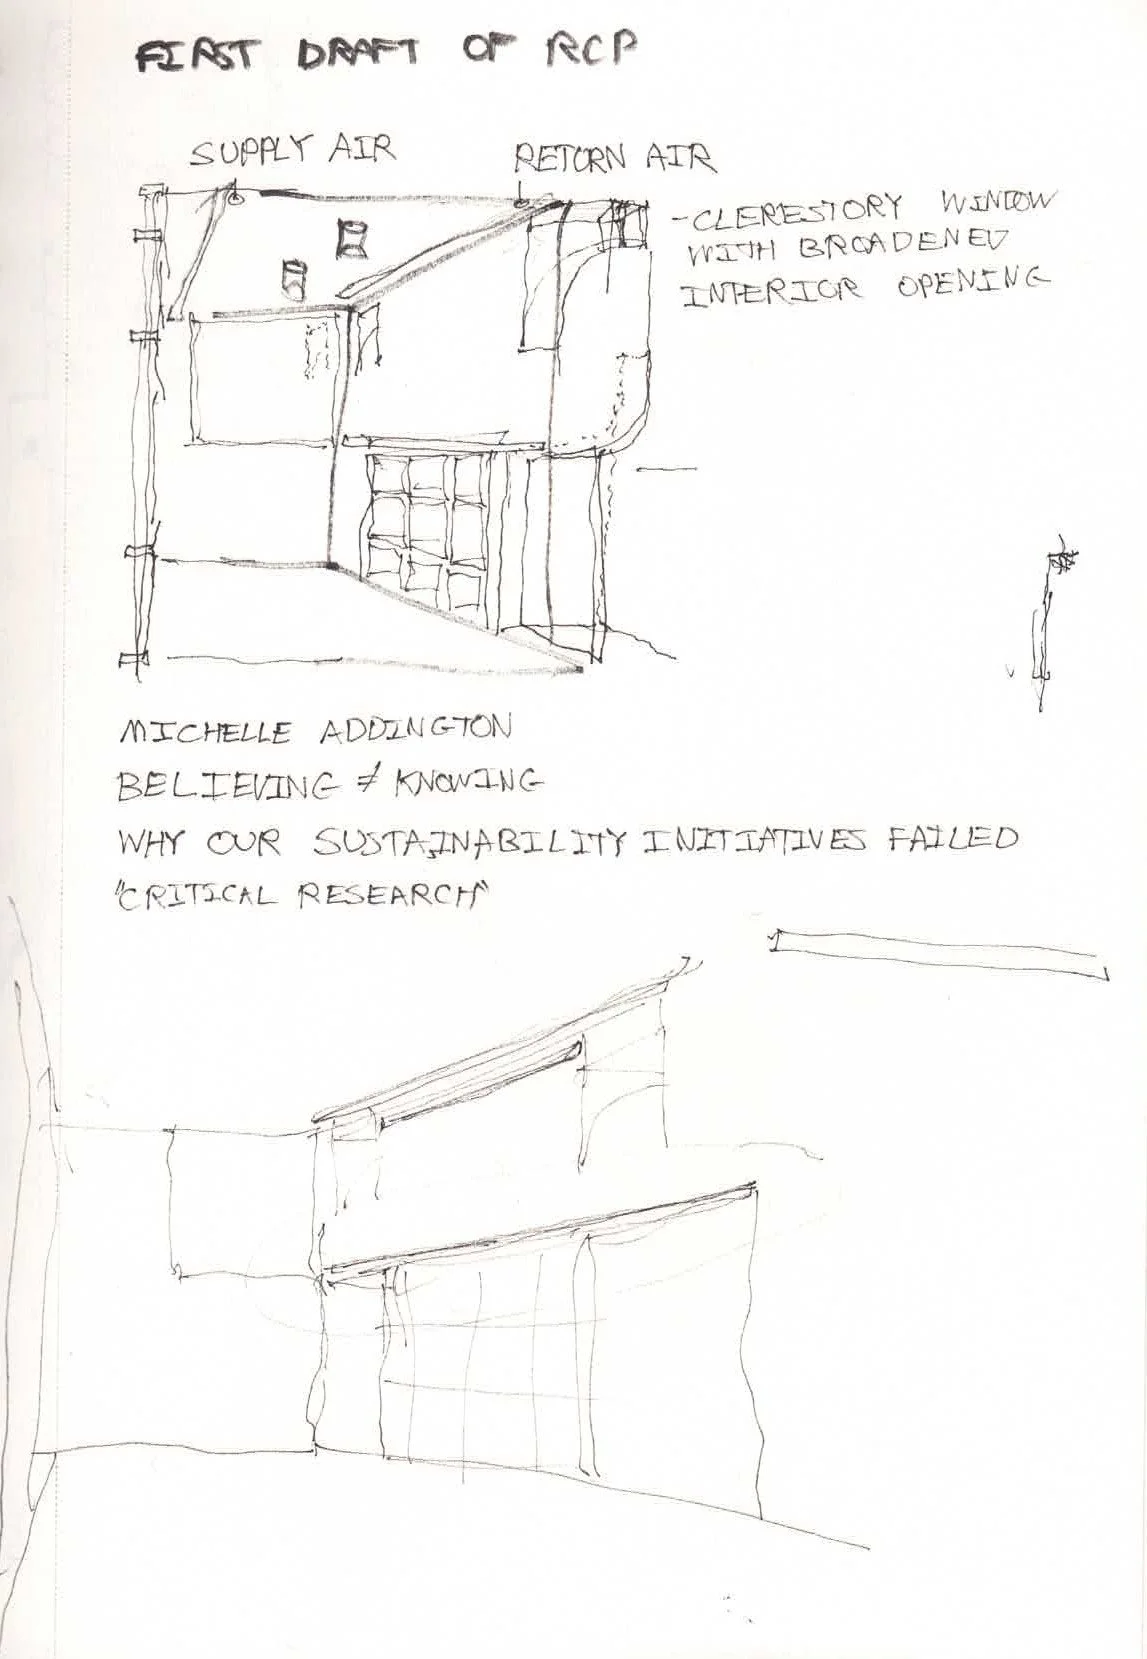 FIRST DRAFT OF RCP
SUPPLY AIR
RETURN AIR
-CLERESTORY WINDOW
WITH BROADENED
INTERIOR OPENING
MICHELLE ADDINGTON
BELIEVING ≠ KNOWING
WHY OUR SUSTAINABILITY INITIATIVES FAILED
"CRITICAL RESEARCH"